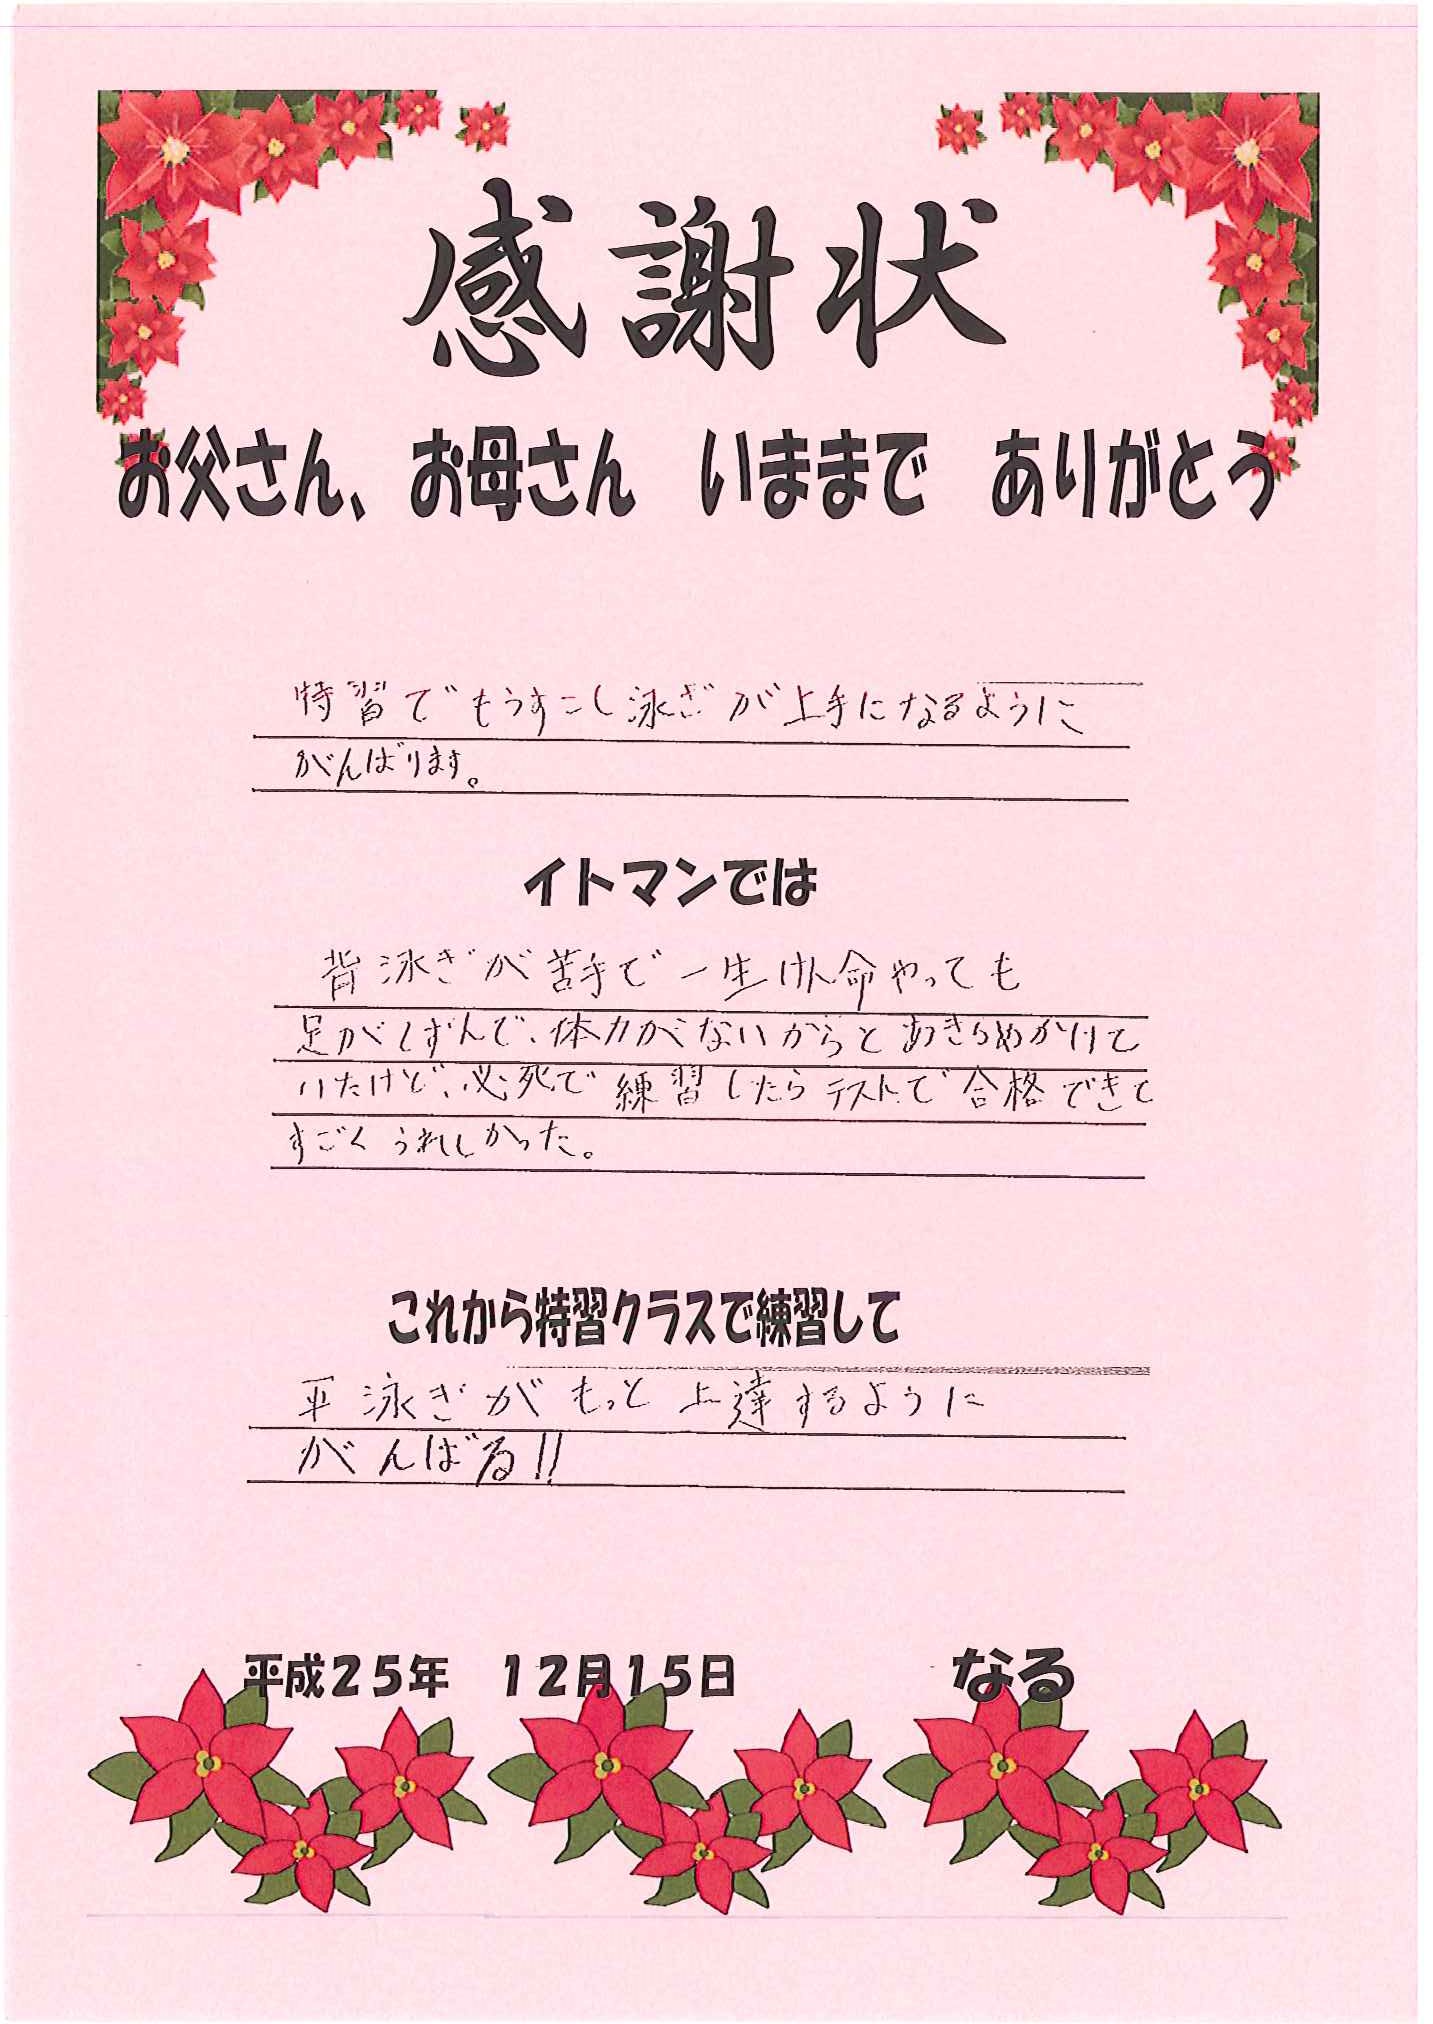 感謝状
お父さん、お母さん いままで ありがとう
特習でもうすこし泳ぎが上手になるように
がんばります。
イトマンでは
背泳ぎが苦手で一生けん命やっても
足がしずんで、体力がないからとあきらめかけて
いたけど、必死で練習したらテストで合格できて
すごくうれしかった。
これから特習クラスで練習して
平泳ぎがもっと上達するように
がんばる!!
平成25年 12月15日 なる